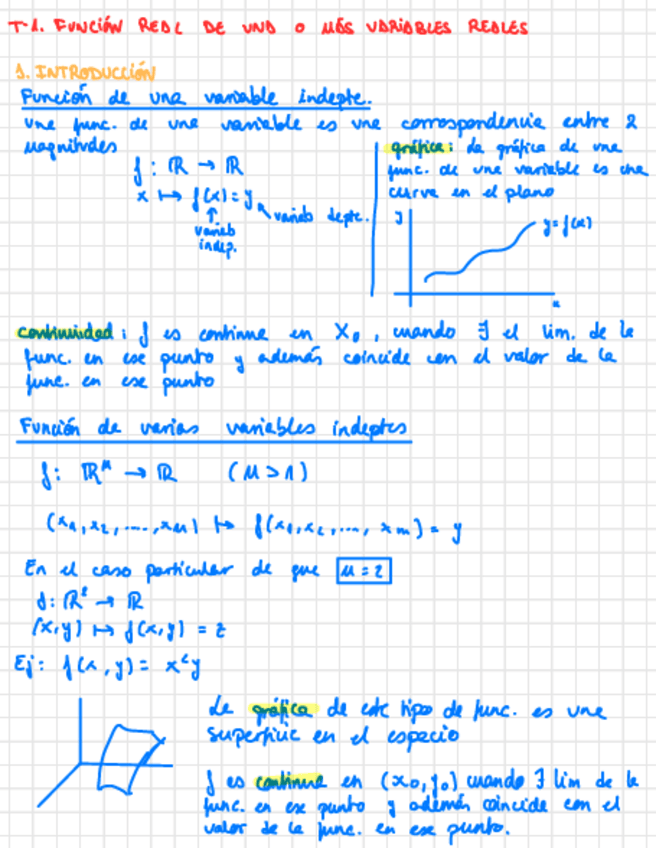 T-1. FUNCIÓN REAL DE UNA O MÁS VARIABLES REALES
1. INTRODUCCIÓN
Función de una variable indepte.
una func. de una variable es una correspondencia entre 2
magnitudes
f : ℝ → ℝ
x ↦ f(x) = y
↑
variab
indep.
variab depte.
gráfica: la gráfica de una
func. de una variable es una
curva en el plano
y
y = f(x)
x
continuidad: f es continua en x₀, cuando ∃ el lim. de la
func. en ese punto y además coincide con el valor de la
func. en ese punto
Función de varias variables indeptes
f: ℝⁿ → ℝ (n > 1)
(x₁, x₂, ..., xn) ↦ f(x₁, x₂, ..., xn) = y
En el caso particular de que n = 2
f: ℝ² → ℝ
(x,y) ↦ f(x,y) = z
Ej: f(x,y) = x²y
La gráfica de este tipo de func. es una
superficie en el espacio
f es continua en (x₀,y₀) cuando ∃ lim de la
func. en ese punto y además coincide con el
valor de la func. en ese punto.